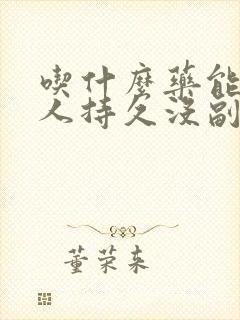 喫什麼藥能
人持久沒副
董荣来